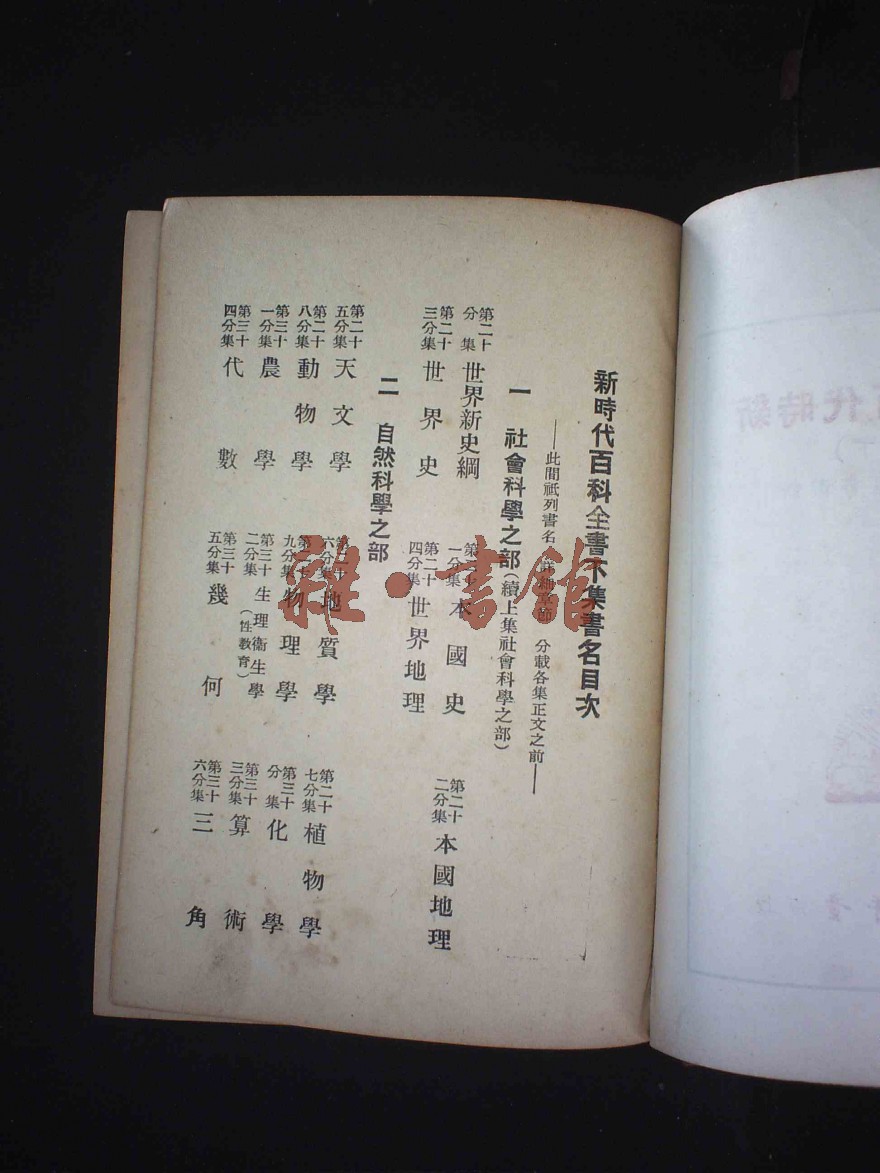 新時代百科全書下集書名目次
——此間祇列書名 詳細章節 分載各集正文之前——
一 社會科學之部(續上集社會科學之部)
第二十分集 世界新史綱 第二十一分集 本國史 第二十二分集 本國地理
第二十三分集 世界史 第二十四分集 世界地理
二 自然科學之部
第二十五分集 天文學 第二十六分集 地質學 第二十七分集 植物學
第二十八分集 動物學 第二十九分集 物理學 第三十分集 化學
第三十一分集 農學 第三十二分集 生理衛生學(性教育) 第三十三分集 算術
第三十四分集 代數 第三十五分集 幾何 第三十六分集 三角
雜·書館